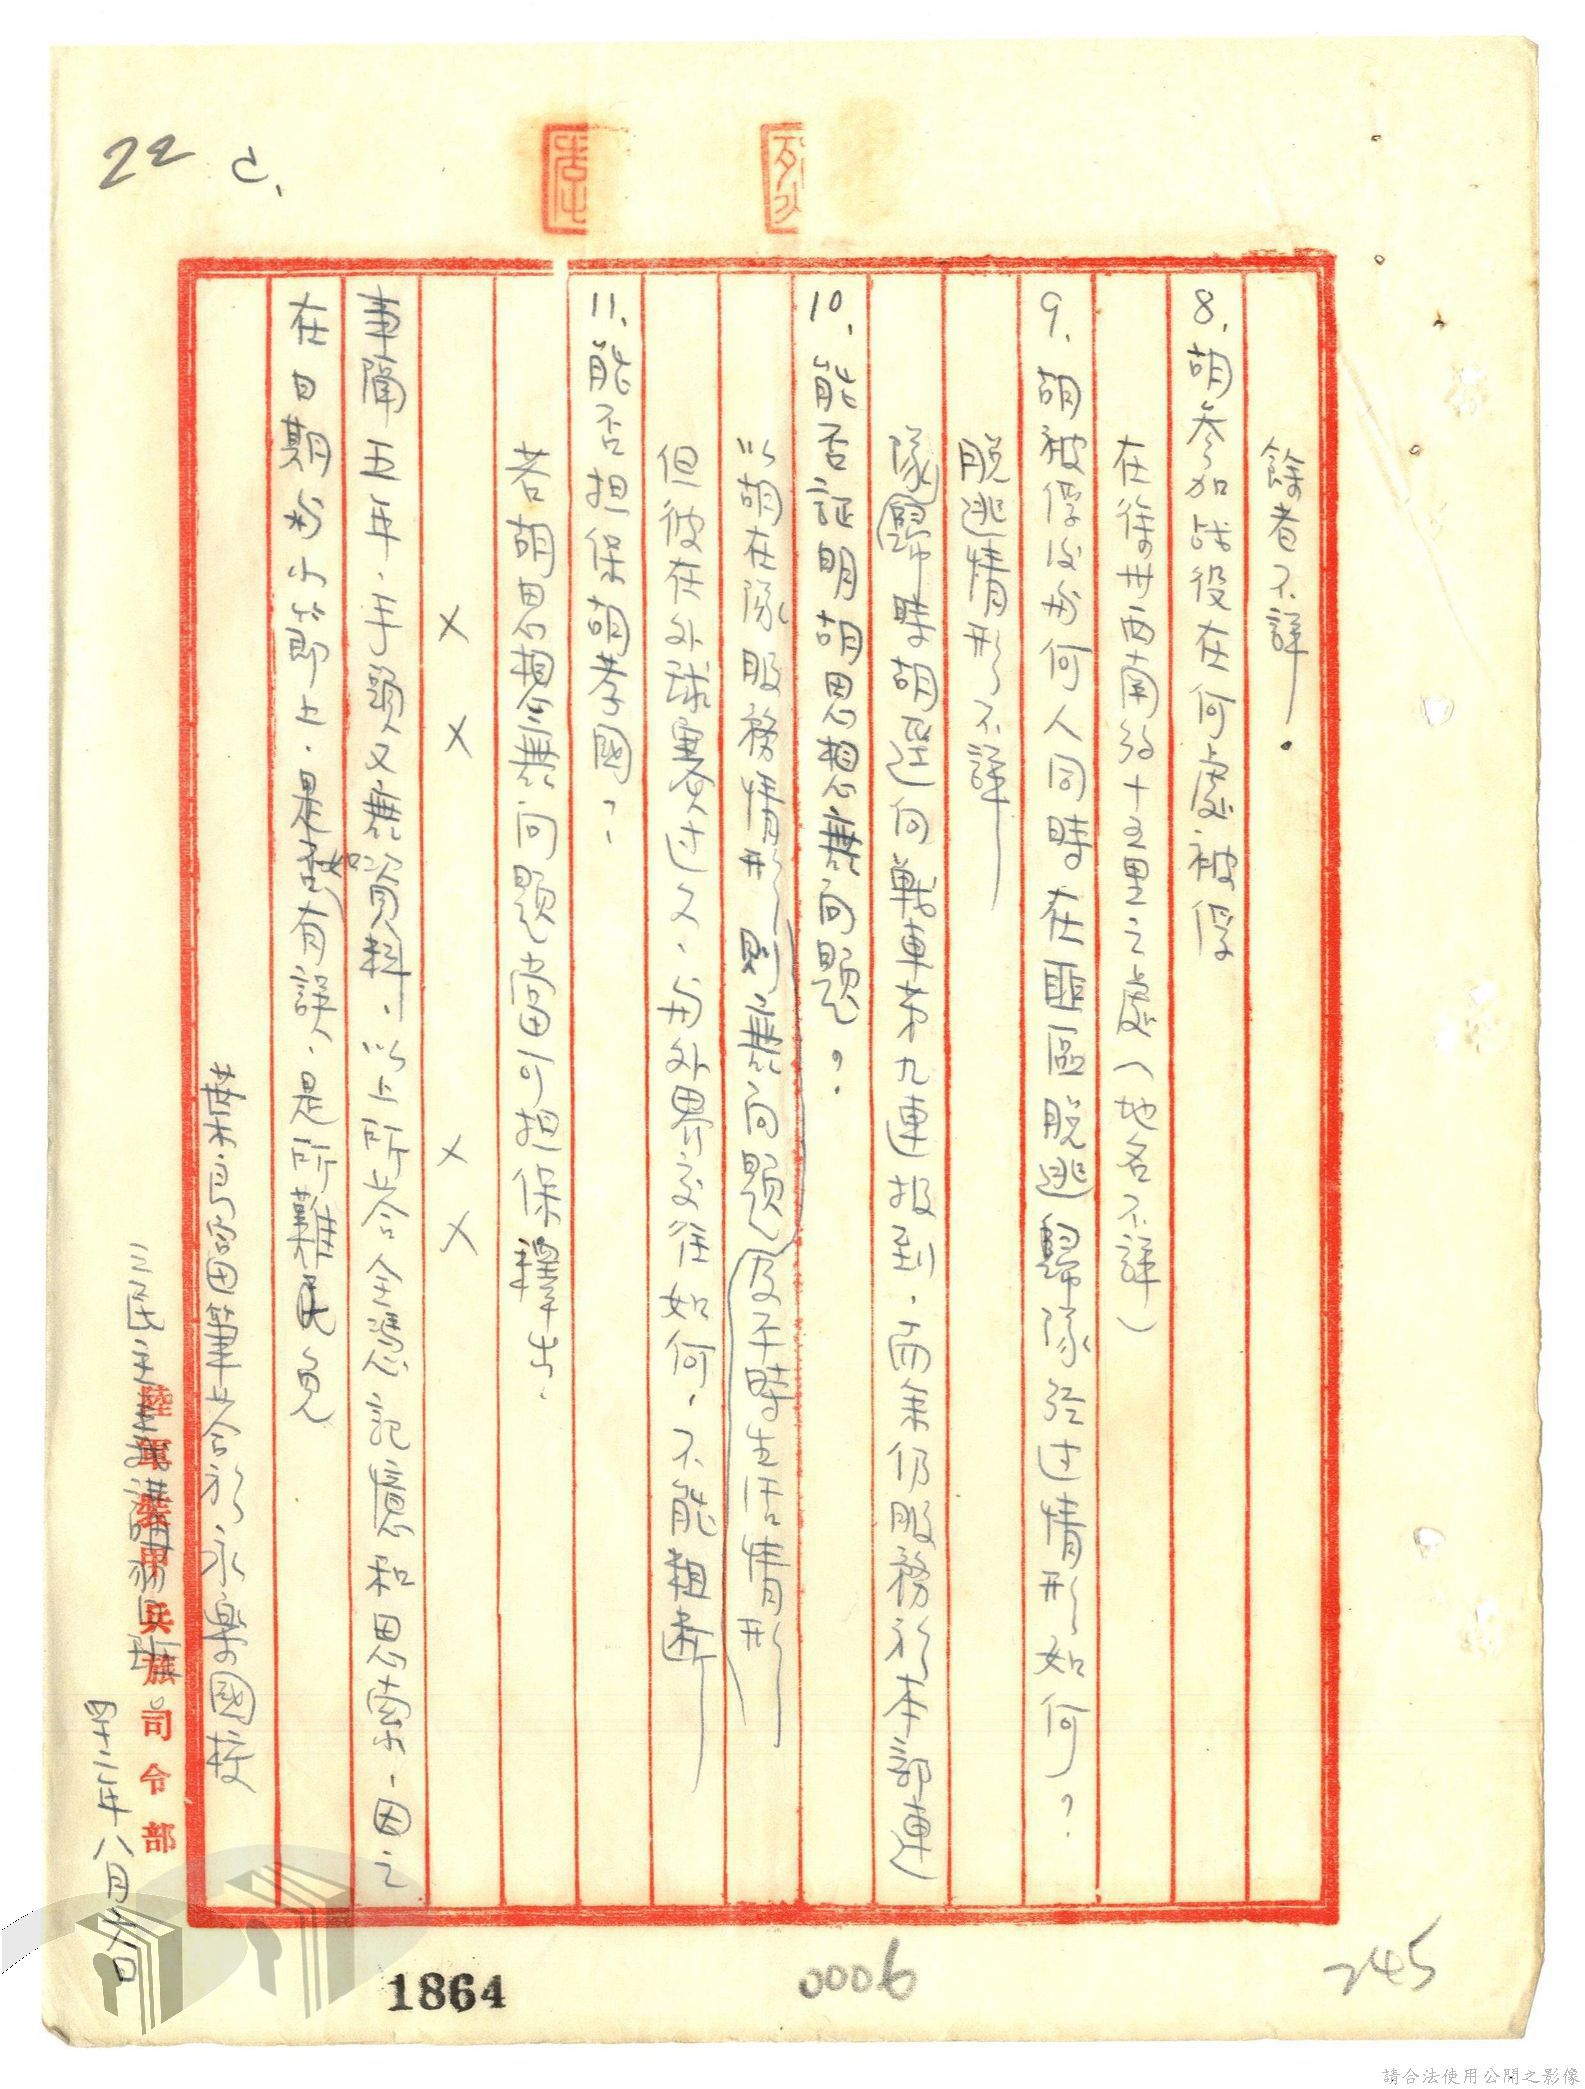 餘者不詳。
8. 胡參加战役在何處被俘
在徐卅西南約十五里之處（地名不詳）
9. 胡被俘後与何人同時在匪區脫逃歸隊經过情形如何？
脫逃情形不詳
隊歸時胡逕向戰車第九連报到，而余仍服務於本部連
10. 能否証明胡思想無问題？
以胡在隊服務情形及平時生活情形則無问題
但彼在外
过久，与外界交往如何，不能粗断
11. 能否担保胡孝國？
若胡思想無问題當可担保釋出。
X X X X
事隔五年，手頭又無資料，以上所答全憑記憶和思索，因之
在日期与小節上，如有誤，是所難免
筆答於永樂國校
三民主義講習班
四十二年八月六日
陸軍裝甲兵旅司令部
22 己、
1864
0006
245
請合法使用公開之影像